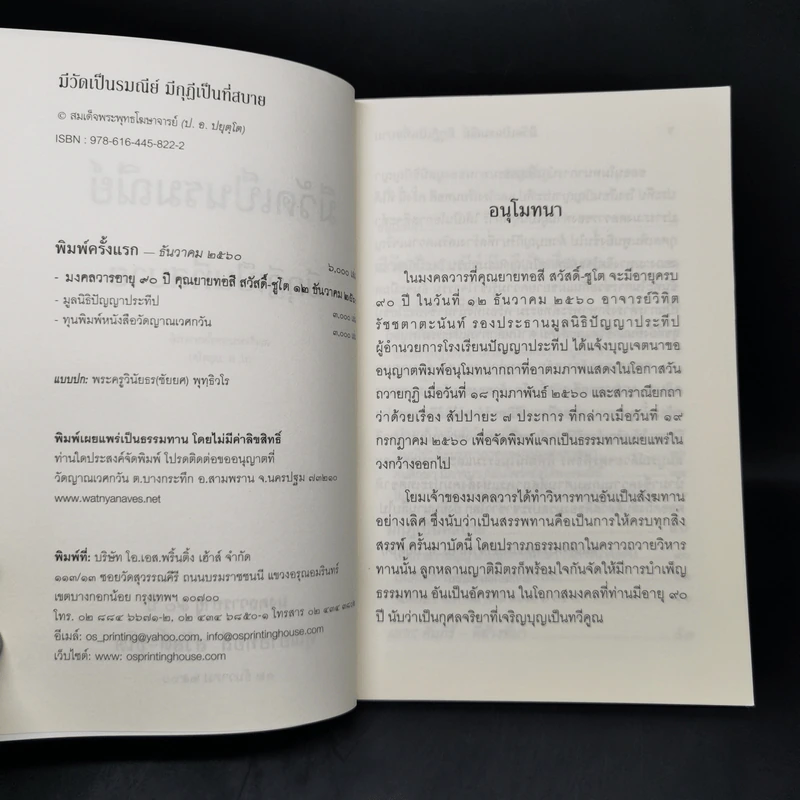 มีวัดเป็นรมณีย์ มีกุฏีเป็นที่สบาย
© สมเด็จพระพุทธโฆษาจารย์ (ป. อ. ปยุตฺโต)
ISBN : 978-616-445-822-2
พิมพ์ครั้งแรก — ธันวาคม ๒๕๖๐ ๖,๐๐๐
- มงคลวารอายุ ๙๐ ปี คุณยายทอสี สวัสดิ์-ชูโต ๑๒ ธันวาคม
- มูลนิธิปัญญาประทีป ๓,๐๐๐
- ทุนพิมพ์หนังสือวัดญาณเวศกวัน ๓,๐๐๐
แบบปก: พระครูวินัยธร(ชัยยศ) พุทฺธิวโร
พิมพ์เผยแพร่เป็นธรรมทาน โดยไม่มีค่าลิขสิทธิ์
ท่านใดประสงค์จัดพิมพ์ โปรดติดต่อขออนุญาตที่
วัดญาณเวศกวัน ต.บางกระทึก อ.สามพราน จ.นครปฐม ๗๓๒๑๐
www.watnyanaves.net
พิมพ์ที่: บริษัท โอ.เอส.พริ้นติ้ง เฮ้าส์ จำกัด
๑๑๓/๑๓ ซอยวัดสุวรรณคีรี ถนนบรมราชชนนี แขวงอรุณอมรินทร์
เขตบางกอกน้อย กรุงเทพฯ ๑๐๗๐๐
โทร. ๐๒ ๘๘๔ ๖๖๗๑-๒, ๐๒ ๔๓๔ ๖๘๕๐-๑ โทรสาร ๐๒ ๔๓๔
อีเมล์: os_printing@yahoo.com, info@osprintinghouse.com
เว็บไซต์: www.osprintinghouse.com
อนุโมทนา
ในมงคลวารที่คุณยายทอสี สวัสดิ์-ชูโต จะมีอายุครบ
๙๐ ปี ในวันที่ ๑๒ ธันวาคม ๒๕๖๐ อาจารย์วิทิต
รัชชตาตะนันท์ รองประธานมูลนิธิปัญญาประทีป
ผู้อำนวยการโรงเรียนปัญญาประทีป ได้แจ้งบุญเจตนาขอ
อนุญาตพิมพ์อนุโมทนากถาที่อาตมภาพแสดงในโอกาสวัน
ถวายกุฏิ เมื่อวันที่ ๑๘ กุมภาพันธ์ ๒๕๖๐ และสาราณียกถา
ว่าด้วยเรื่อง สัปปายะ ๗ ประการ ที่กล่าวเมื่อวันที่ ๑๙
กรกฎาคม ๒๕๖๐ เพื่อจัดพิมพ์แจกเป็นธรรมทานเผยแพร่ใน
วงกว้างออกไป
โยมเจ้าของมงคลวารได้ทำวิหารทานอันเป็นสังฆทาน
อย่างเลิศ ซึ่งนับว่าเป็นสรรพทานคือเป็นการให้ครบทุกสิ่ง
สรรพ์ ครั้นมาบัดนี้ โดยปรารภธรรมกถาในคราวถวายวิหาร
ทานนั้น ลูกหลานญาติมิตรก็พร้อมใจกันจัดให้มีการบำเพ็ญ
ธรรมทาน อันเป็นอัครทาน ในโอกาสมงคลที่ท่านมีอายุ ๙๐
ปี นับว่าเป็นกุศลจริยาที่เจริญบุญเป็นทวีคูณ